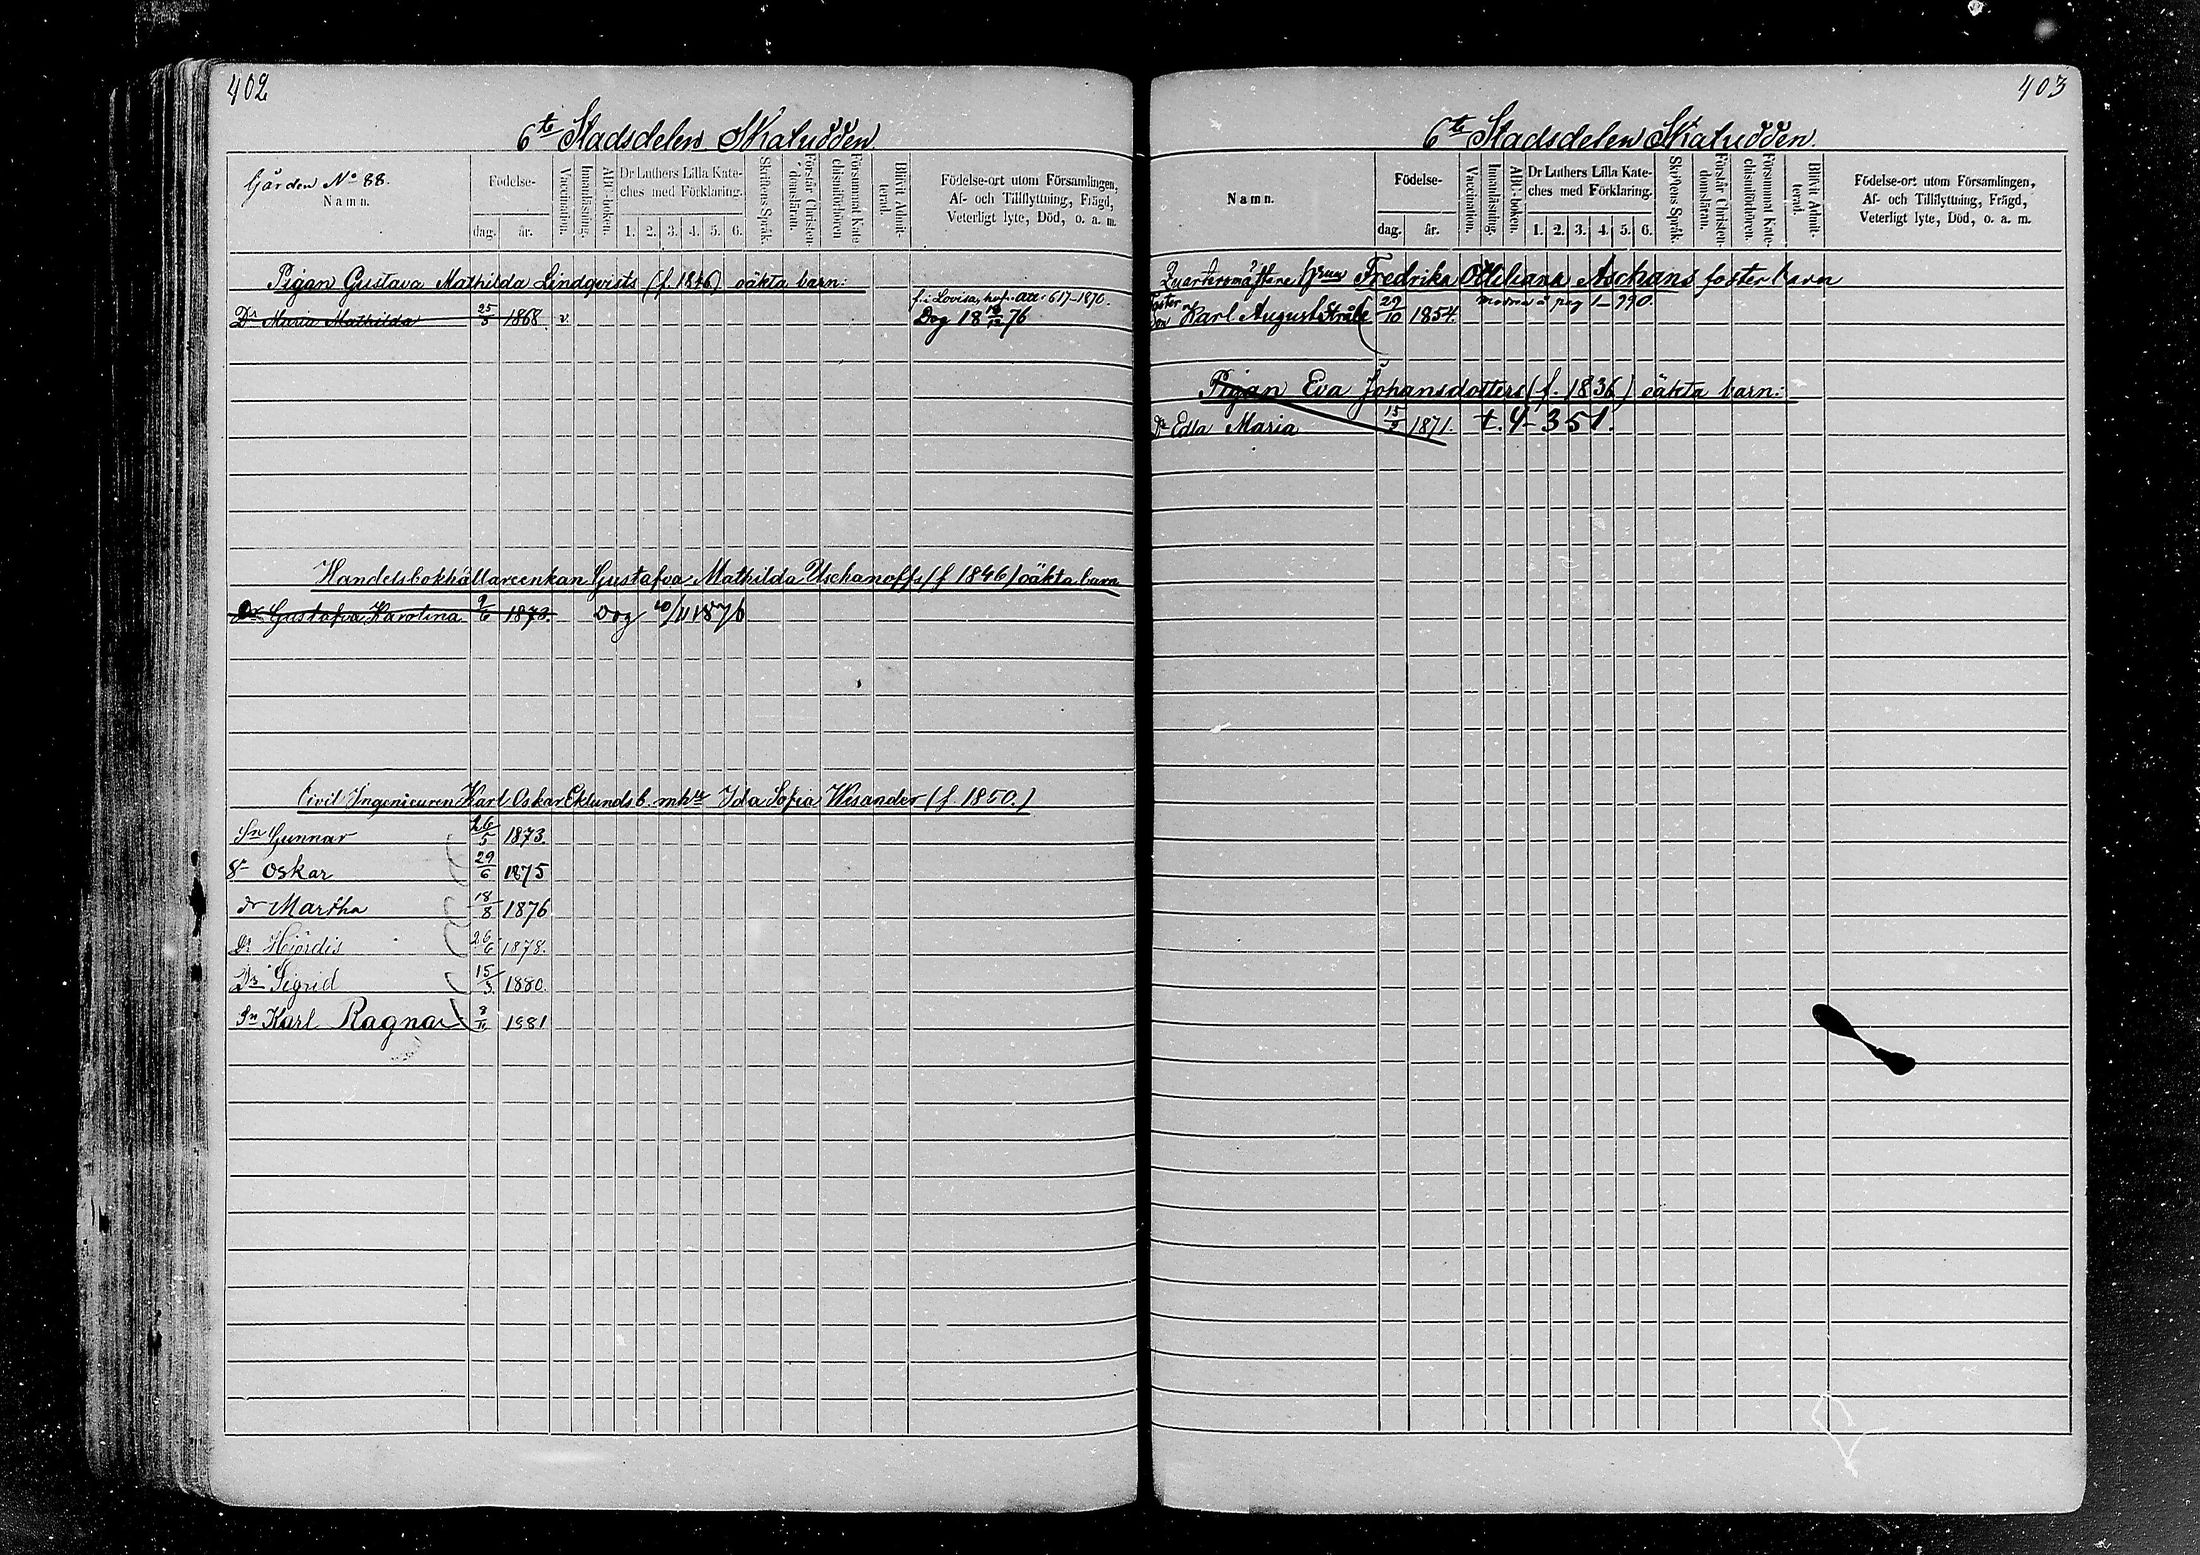 402
6te Stadsdelen Skatudden
Gården No 88.
Namn.
Födelse-
dag. år.
Vaccination.
Innanläsning.
ABC-boken.
Dr Luthers Lilla Kate-
ches med Förklaring.
1. 2. 3. 4. 5. 6.
Skriftens Språk.
Förstår Christen-
domsläran.
Försummat Kate-
chismiförhören
Blifvit Admit-
terad.
Födelse-ort utom Församlingen,
Af- och Tillflyttning, Frägd,
Veterligt lyte, Död, o. a. m.
Pigan Gustava Mathilda Lindqvists (f. 1846) oäkta barn:
f. i Lovisa, huf. att: 617-1870.
Dr Maria Mathilda 25/5 1868. v. Dog 18 /12 76
Handelsbokhållareenkan Gustafva Mathilda Uschanoffs (f 1846) oäkta barn
Dr Gustafva Karolina 9/6 1873. Dog 10/11 1876
Civil Ingenieuren Karl Oskar Eklunds b. mhu Ida Sofia Wisander (f. 1850.)
Sn Gunnar 26/5 1873.
Sn Oskar 29/6 1875
dr Martha 18/8 1876
Dr Hjördis 26/6 1878.
Dr Sigrid 15/3 1880.
Sn Karl Ragnar 8/11 1881
403
6te Stadsdelen Skatudden.
Namn.
Födelse-
dag. år.
Vaccination.
Innanläsning.
ABC-boken.
Dr Luthers Lilla Kate-
ches med Förklaring.
1. 2. 3. 4. 5. 6.
Skriftens Språk.
Förstår Christen-
domsläran.
Försummat Kate-
chismiförhören.
Blifvit Admit-
terad.
Födelse-ort utom Församlingen,
Af- och Tillflyttning, Frägd,
Veterligt lyte, Död, o. a. m.
Fredrika Ottiliana Aschans foster barn
modren å pag 1-990.
Foster
son Karl August Stråle 29/10 1854.
Pigan Eva Johansdotters (f. 1836) oäkta barn:
Dr Edla Maria 15/2 1871. t. 4-351.